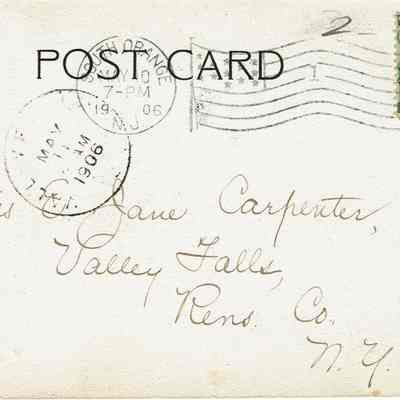 2
POST CARD
SOUTH ORANGE
MAY 10
7-PM
1906
N.J.
1
MAY
11
AM
1906
N.Y.
Jane Carpenter,
Valley Falls,
Rens. Co.
N.Y.